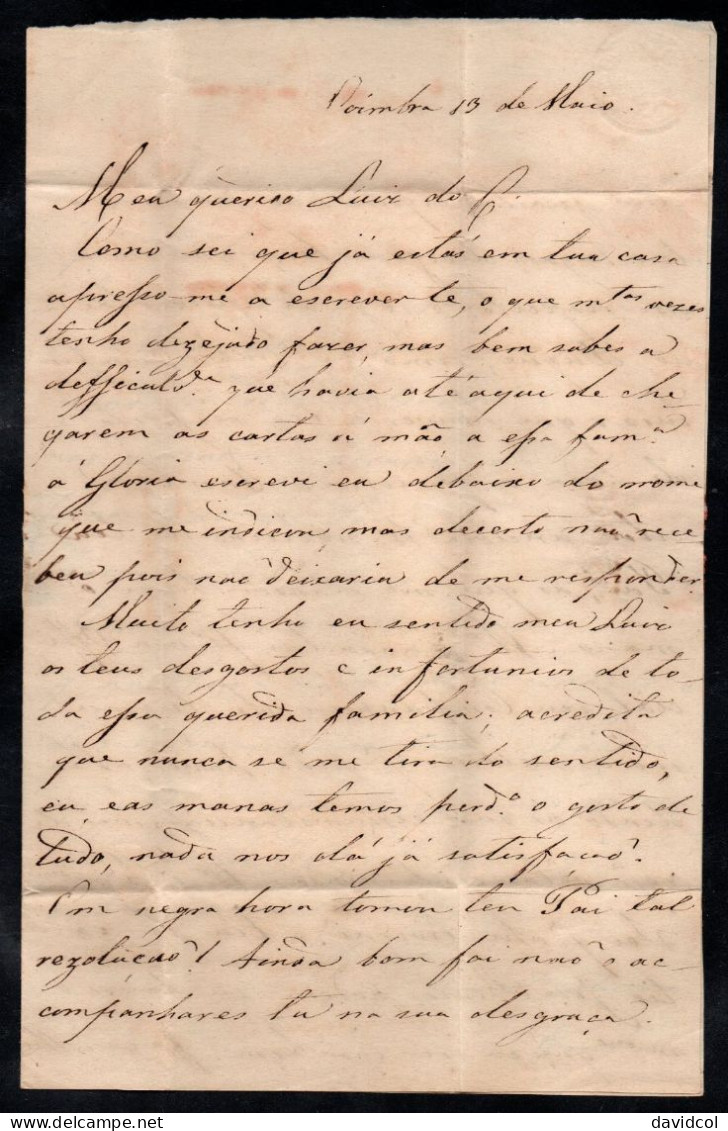 Coimbra 13 de Maio.
Meu querido Luiz do C.
Como sei que já estás em tua casa
apresso-me a escrever-te, o que m.tas vezes
tenho dezejado fazer, mas bem sabes a
defficuld.e que havia até aqui de che-
garem as cartas á mão a essa fam.a
á Gloria escrevi eu debaixo do nome
que me indicou, mas decerto naõ rece
beu pois naõ deixaria de me responder.
Muito tenho eu sentido meu Luiz
os teus desgostos e infortunios de to-
da essa querida familia; acredita
que nunca se me tira do sentido,
eu, e as manas temos perd.o o gosto de
tudo, nada nos dá já satisfaçaõ.
Em negra hora tomou teu Pai tal
rezoluçaõ! Ainda bom foi naõ o ac-
companhares tu na sua desgraça.
davidcol